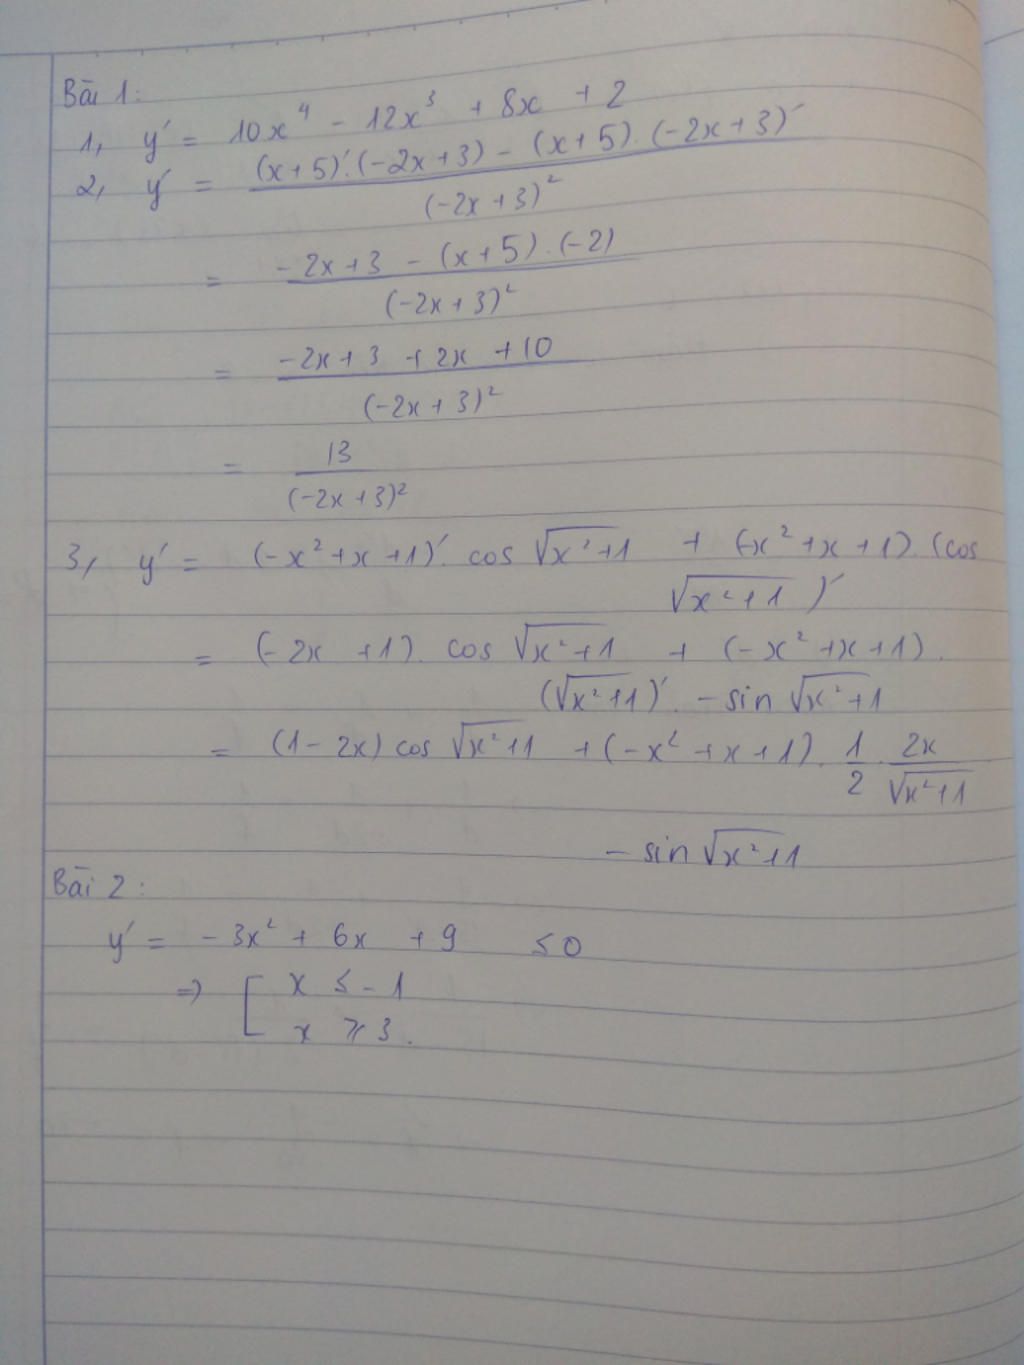 Bài 1:
1, y' = 10x⁴ - 12x³ + 8x + 2
2, y' = ((x+5)'.(-2x+3) - (x+5).(-2x+3)')/(-2x+3)²
= (-2x+3 - (x+5).(-2))/(-2x+3)²
= (-2x+3 + 2x + 10)/(-2x+3)²
= 13/(-2x+3)²
3, y' = (-x²+x+1)'. cos √(x²+1) + (-x²+x+1). (cos
√(x²+1))'
= (-2x +1). cos √(x²+1) + (-x²+x+1).
(√(x²+1))'. -sin √(x²+1)
= (1-2x) cos √(x²+1) + (-x²+x+1). 1/2 . 2x/√(x²+1)
-sin √(x²+1)
Bài 2:
y' = -3x² + 6x + 9 ≤ 0
=> [ x ≤ -1
x ≥ 3.